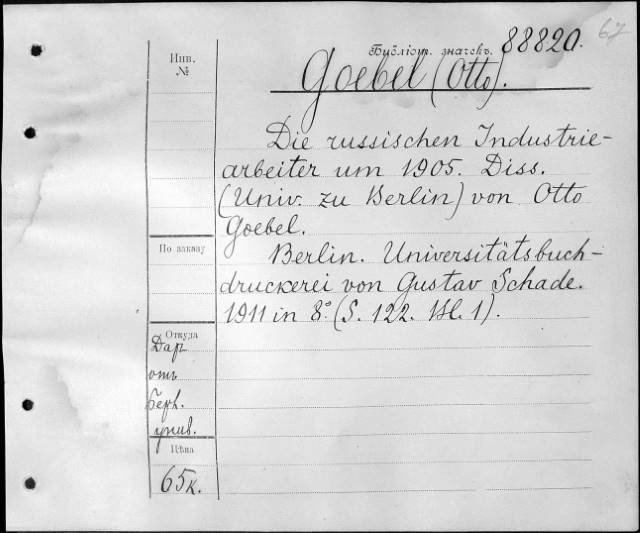 67
Библіот. значекъ. 88820.
Инв.
№
Goebel (Otto).
Die russischen Industrie-
arbeiter um 1905. Diss.
(Univ. zu Berlin) von Otto
Goebel.
По заказу
Berlin. Universitätsbuch-
druckerei von Gustav Schade.
1911 in 8.° (S. 122. Bl. 1).
Откуда
Дар
отъ
Берл.
унив.
Цѣна
65к.